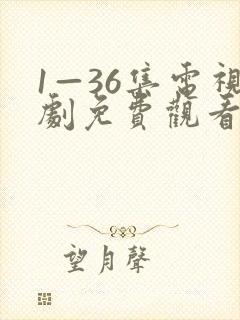 1—36集電視
劇免費觀看
望月聲